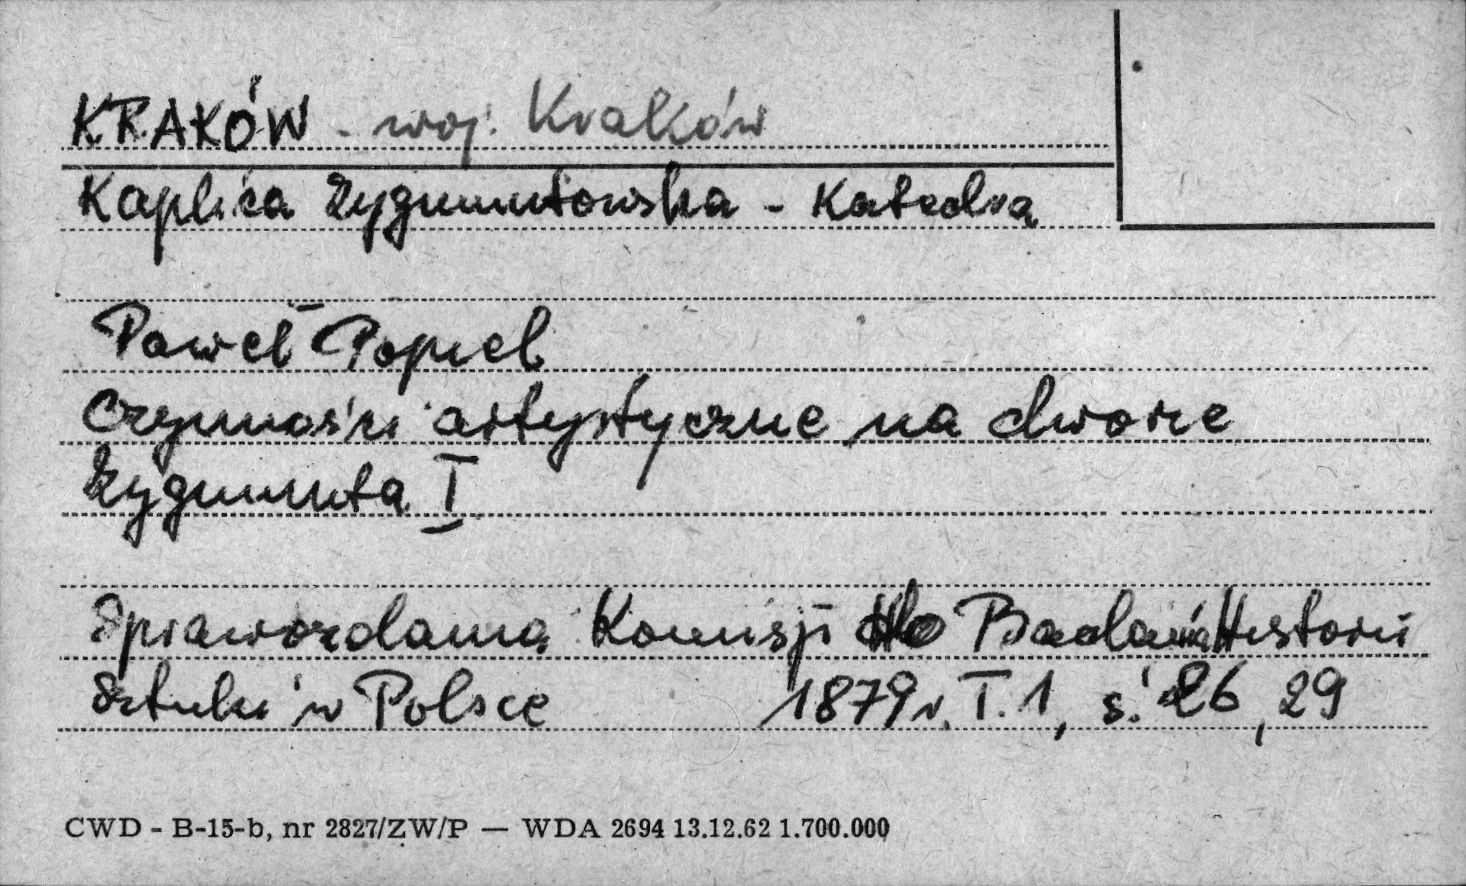 KRAKÓW - woj. Kraków
Kaplica Zygmuntowska - Katedra
Paweł Popiel
Czynności artystyczne na dworze
Zygmunta I
Sprawozdania Komisji do Badania Historii
Sztuki w Polsce 1879 r. T. 1, s. 26, 29
CWD - B-15-b, nr 2827/ZW/P — WDA 2694 13.12.62 1.700.000